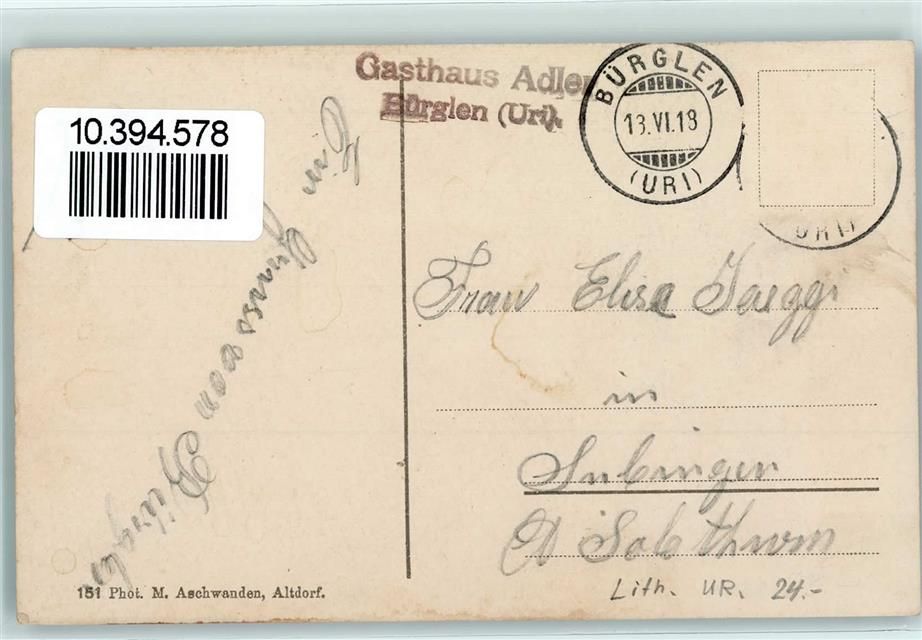 10.394.578
Gasthaus Adler
Bürglen (Uri).
BÜRGLEN
13.VI.18
(URI)
URI)
Ein Gruss von Bürglen
Frau Elisa Jaeggi
in
Subingen
Ct Solothurn
151 Phot. M. Aschwanden, Altdorf.
Lith. UR. 24.-